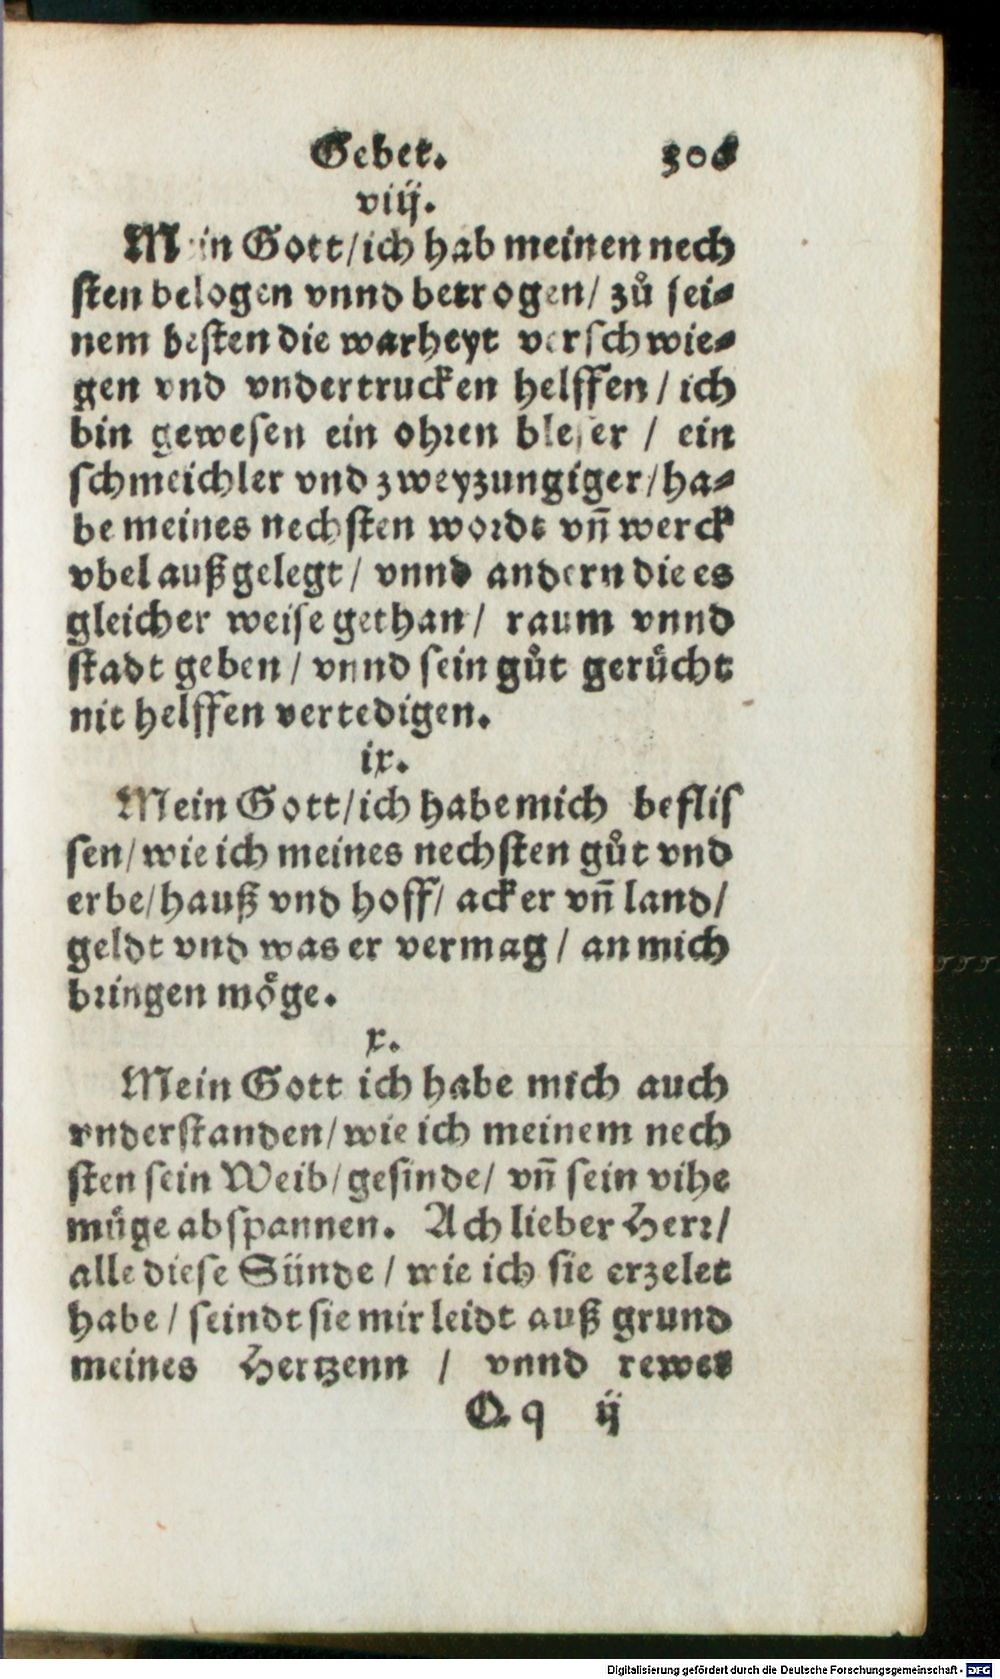 Gebet. 306
viij.
Mein Gott/ich hab meinen nech
sten belogen vnnd betrogen/ zů sei⸗
nem besten die warheyt verschwie⸗
gen vnd vndertrucken helffen / ich
bin gewesen ein ohren bleser / ein
schmeichler vnd zweyzungiger/ha⸗
be meines nechsten wordt vn̄ werck
vbel außgelegt / vnnd andern die es
gleicher weise gethan/ raum vnnd
stadt geben / vnnd sein gůt gerücht
nit helffen vertedigen.
ix.
Mein Gott/ich habe mich beflis
sen/wie ich meines nechsten gůt vnd
erbe/hauß vnd hoff/ acker vn̄ land/
geldt vnd was er vermag / an mich
bringen möge.
x.
Mein Gott ich habe mich auch
vnderstanden/wie ich meinem nech
sten sein Weib/gesinde/ vn̄ sein vihe
müge abspannen. Ach lieber Herr/
alle diese Sünde / wie ich sie erzelet
habe / seindt sie mir leidt auß grund
meines Hertzenn / vnnd rewet
Qq ij
Digitalisierung gefördert durch die Deutsche Forschungsgemeinschaft - DFG